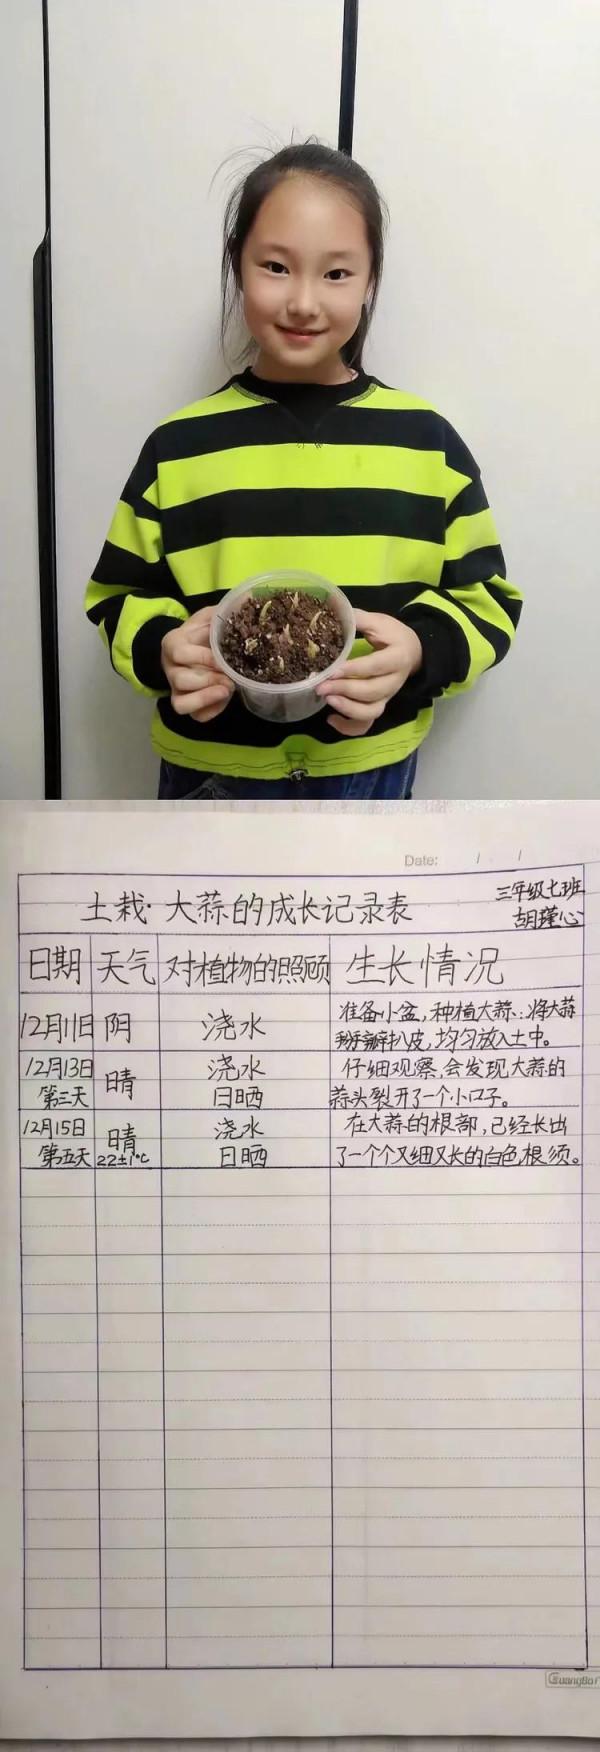 Date: / /
三年级七班
土栽·大蒜的成长记录表
胡瑾心
日期 天气 对植物的照顾 生长情况
12月11日 阴 浇水 准备小盆,种植大蒜:将大蒜
掰瓣扒皮,均匀放入土中。
12月13日 晴 浇水 仔细观察,会发现大蒜的
第三天 日晒 蒜头裂开了一个小口子。
12月15日 晴 浇水 在大蒜的根部,已经长出
第五天 22±1°C 日晒 了一个个又细又长的白色根须。
GuangBo